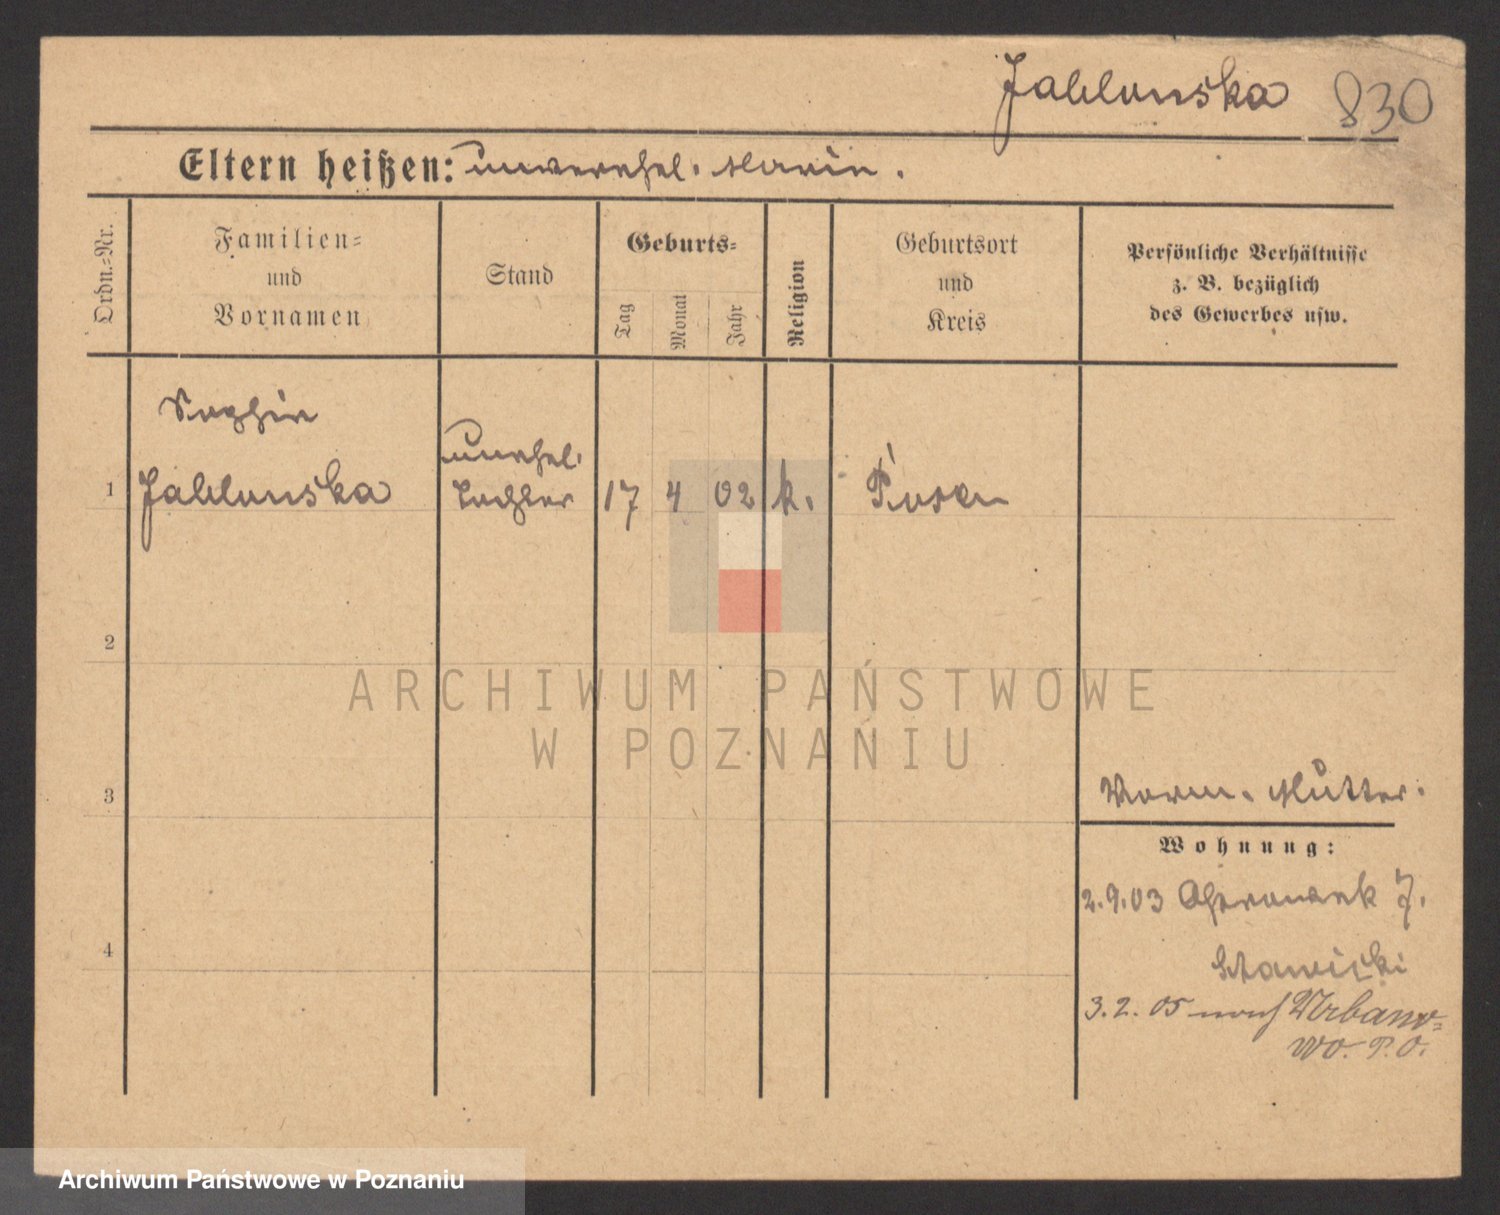 Jablonska 830
Eltern heißen: unverehel. Marie.
Ordn.=Nr.
Familien=
und
Vornamen
Stand
Geburts=
Tag
Monat
Jahr
Religion
Geburtsort
und
Kreis
Persönliche Verhältnisse
z. B. bezüglich
des Gewerbes usw.
Sophie
unehel.
1 Jablonska Tochter 17 4 02 k. Posen
2
3
Vorm. Mutter.
Wohnung:
2.9.03 7.
4
Stawicki
3.2.05 nach Urbano=
wo. P.O.
ARCHIWUM PAŃSTWOWE
W POZNANIU
Archiwum Państwowe w Poznaniu